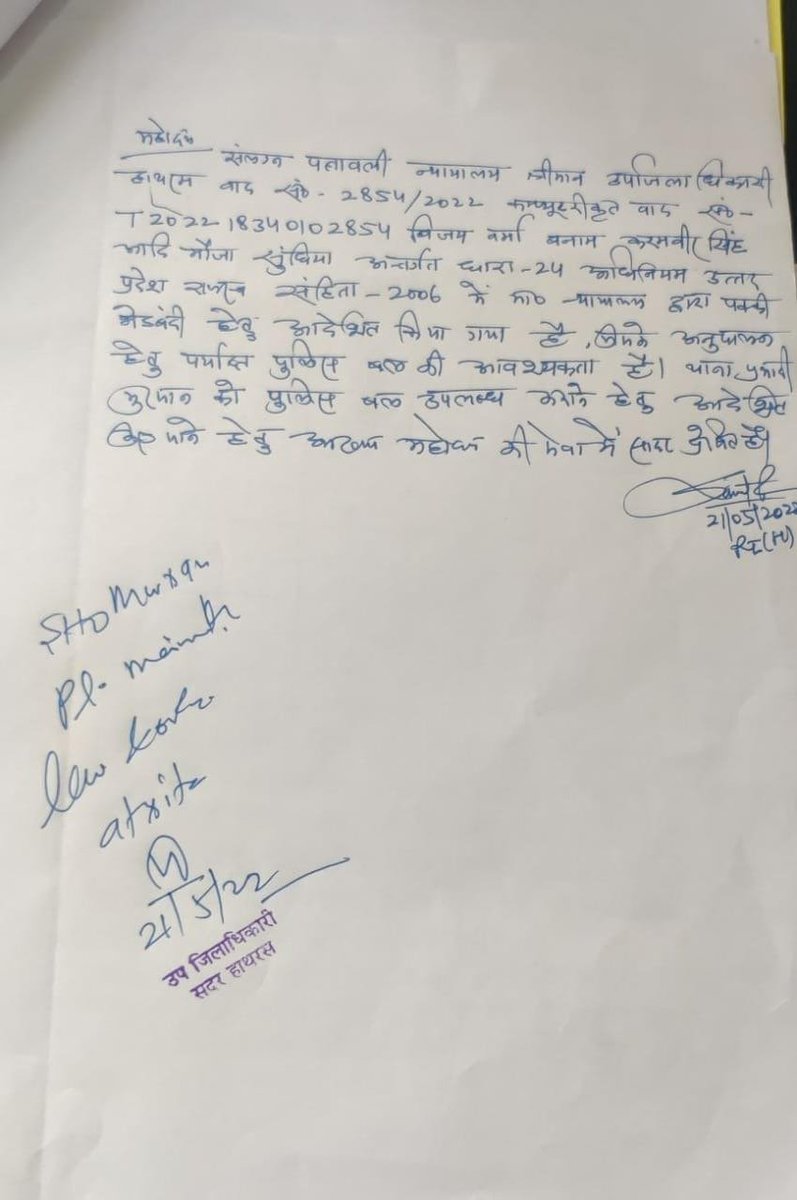 महोदय
संलग्न पत्रावली न्यायालय श्रीमान उपजिलाधिकारी
हाथरस वाद सं०- 2854/2022 कम्प्यूटरीकृत वाद सं०-
T202218340102854 विजय वर्मा बनाम करमवीर सिंह
आदि मौजा सुंधिया अन्तर्गत धारा-24 अधिनियम उत्तर
प्रदेश राजस्व संहिता-2006 में मा० न्यायालय द्वारा पक्की
मेडबंदी हेतु आदेशित किया गया है, जिसके अनुपालन
हेतु पर्याप्त पुलिस बल की आवश्यकता है। थाना प्रभारी
मुरसान को पुलिस बल उपलब्ध कराने हेतु आदेशित
किए जाने हेतु आख्या महोदय की सेवा में सादर प्रेषित है।
21/05/2022
RI
SHO Mursan
Pl. maint
law
at site
21/5/22
उप जिलाधिकारी
सदर हाथरस